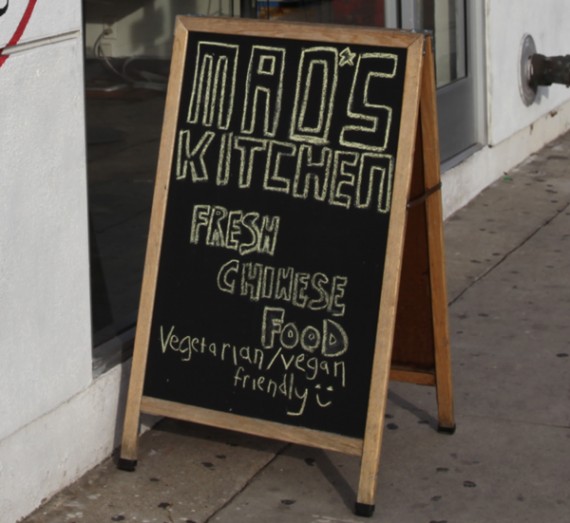 MAO'S
KITCHEN
FRESH
CHINESE
FOOD
Vegetarian/vegan
friendly